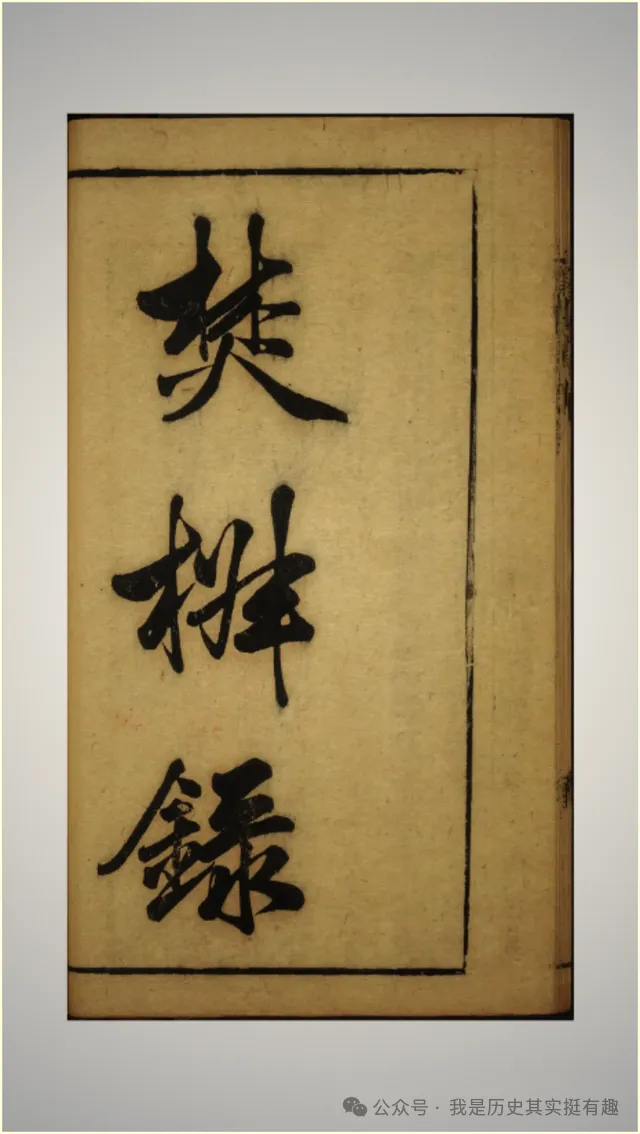 焚椒錄
公众号 · 我是历史其实挺有趣